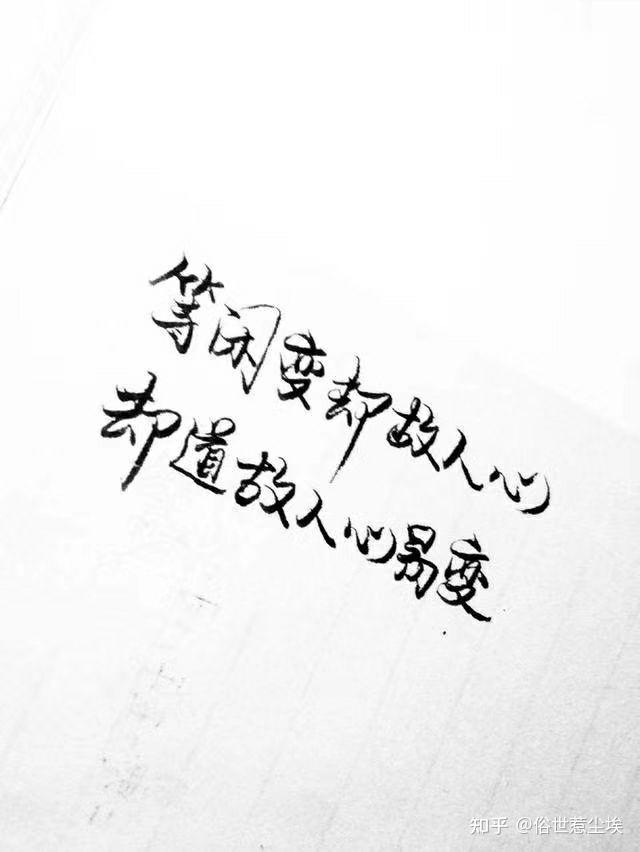 等闲变却故人心
却道故人心易变
知乎 @俗世惹尘埃